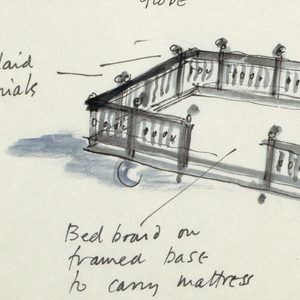 globe
laid
rials
Bed board on
framed base
to carry mattress